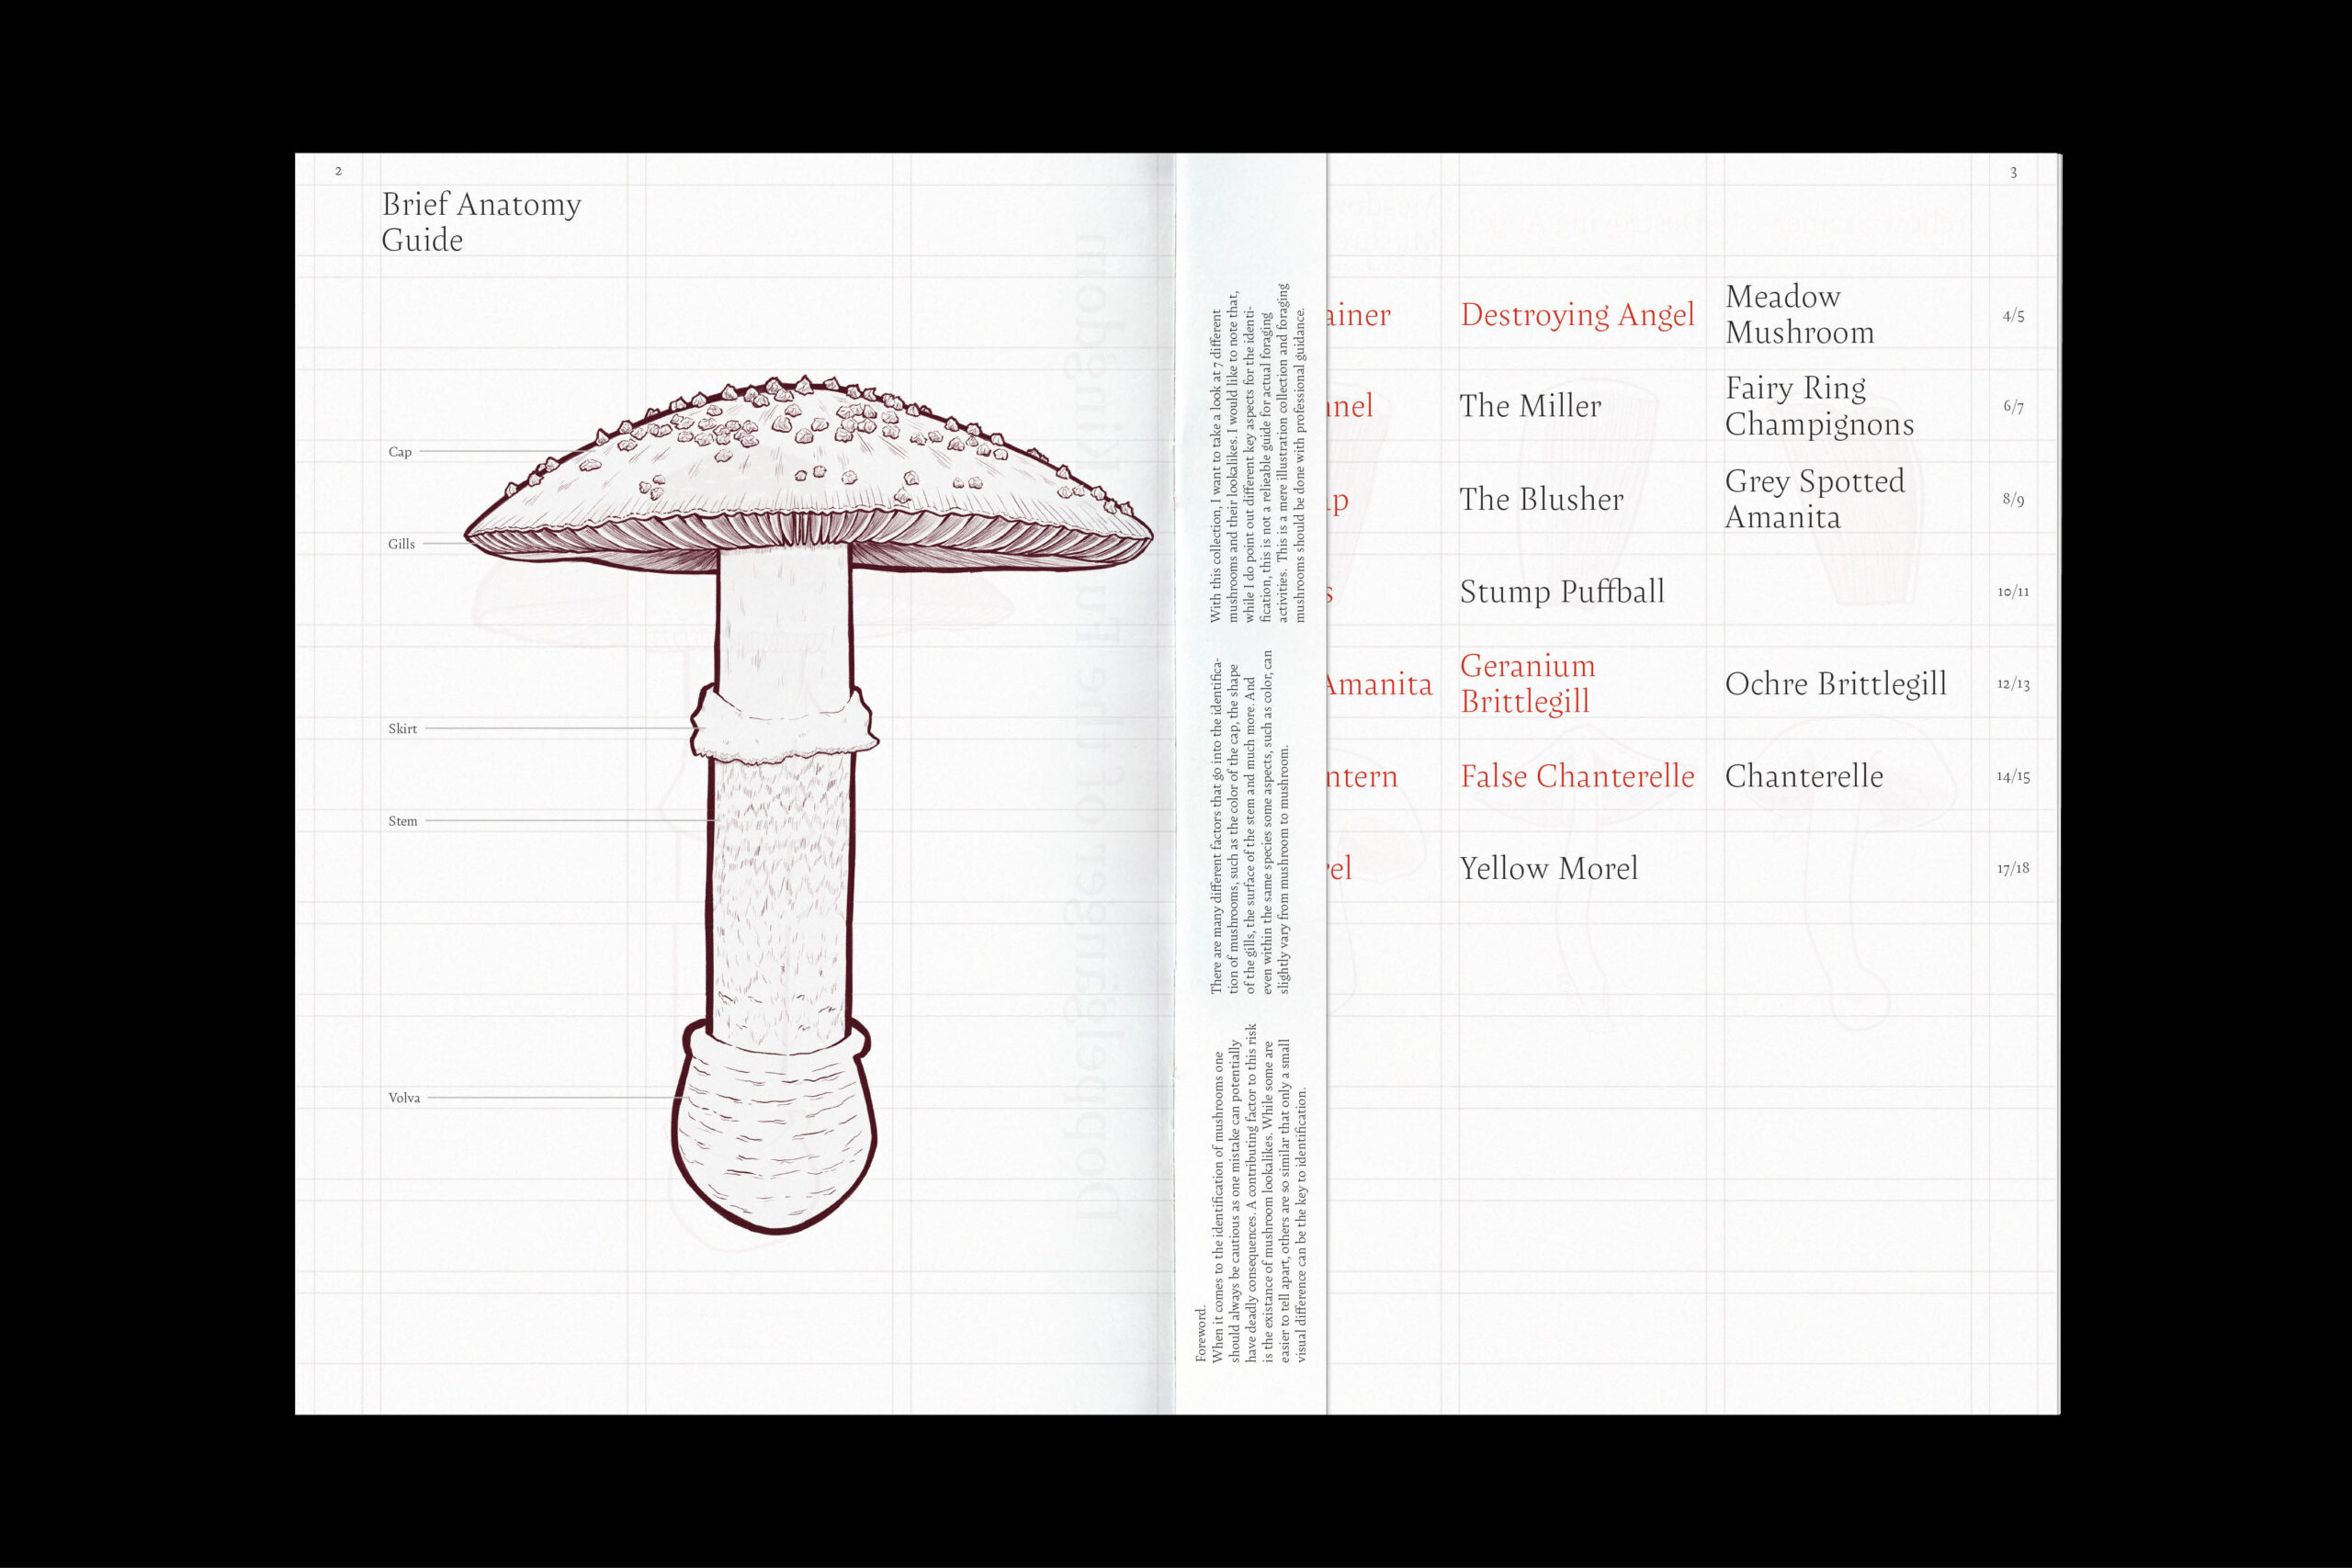 2
Brief Anatomy
Guide
Cap
Gills
Skirt
Stem
Volva
Foreword.
When it comes to the identification of mushrooms one
should always be cautious as one mistake can potentially
have deadly consequences. A contributing factor to this risk
is the existance of mushroom lookalikes. While some are
easier to tell apart, others are so similar that only a small
visual difference can be the key to identification.
There are many different factors that go into the identifica-
tion of mushrooms, such as the color of the cap, the shape
of the gills, the surface of the stem and much more. And
even within the same species some aspects, such as color, can
slightly vary from mushroom to mushroom.
With this collection, I want to take a look at 7 different
mushrooms and their lookalikes. I would like to note that,
while I do point out different key aspects for the identi-
fication, this is not a relieable guide for actual foraging
activities. This is a mere illustration collection and foraging
mushrooms should be done with professional guidance.
3
ainer Destroying Angel Meadow Mushroom 4/5
nel The Miller Fairy Ring Champignons 6/7
p The Blusher Grey Spotted Amanita 8/9
s Stump Puffball 10/11
Amanita Geranium Brittlegill Ochre Brittlegill 12/13
ntern False Chanterelle Chanterelle 14/15
el Yellow Morel 17/18